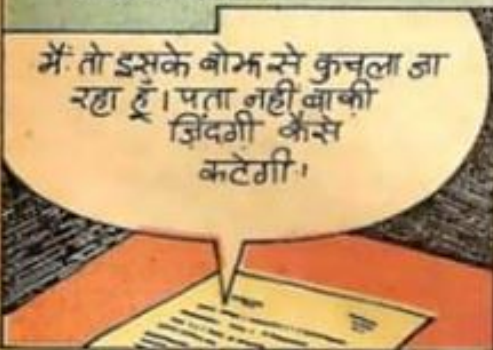 मैं तो इसके बोझ से कुचला जा
रहा हूँ। पता नहीं बाकी
ज़िंदगी कैसे
कटेगी।